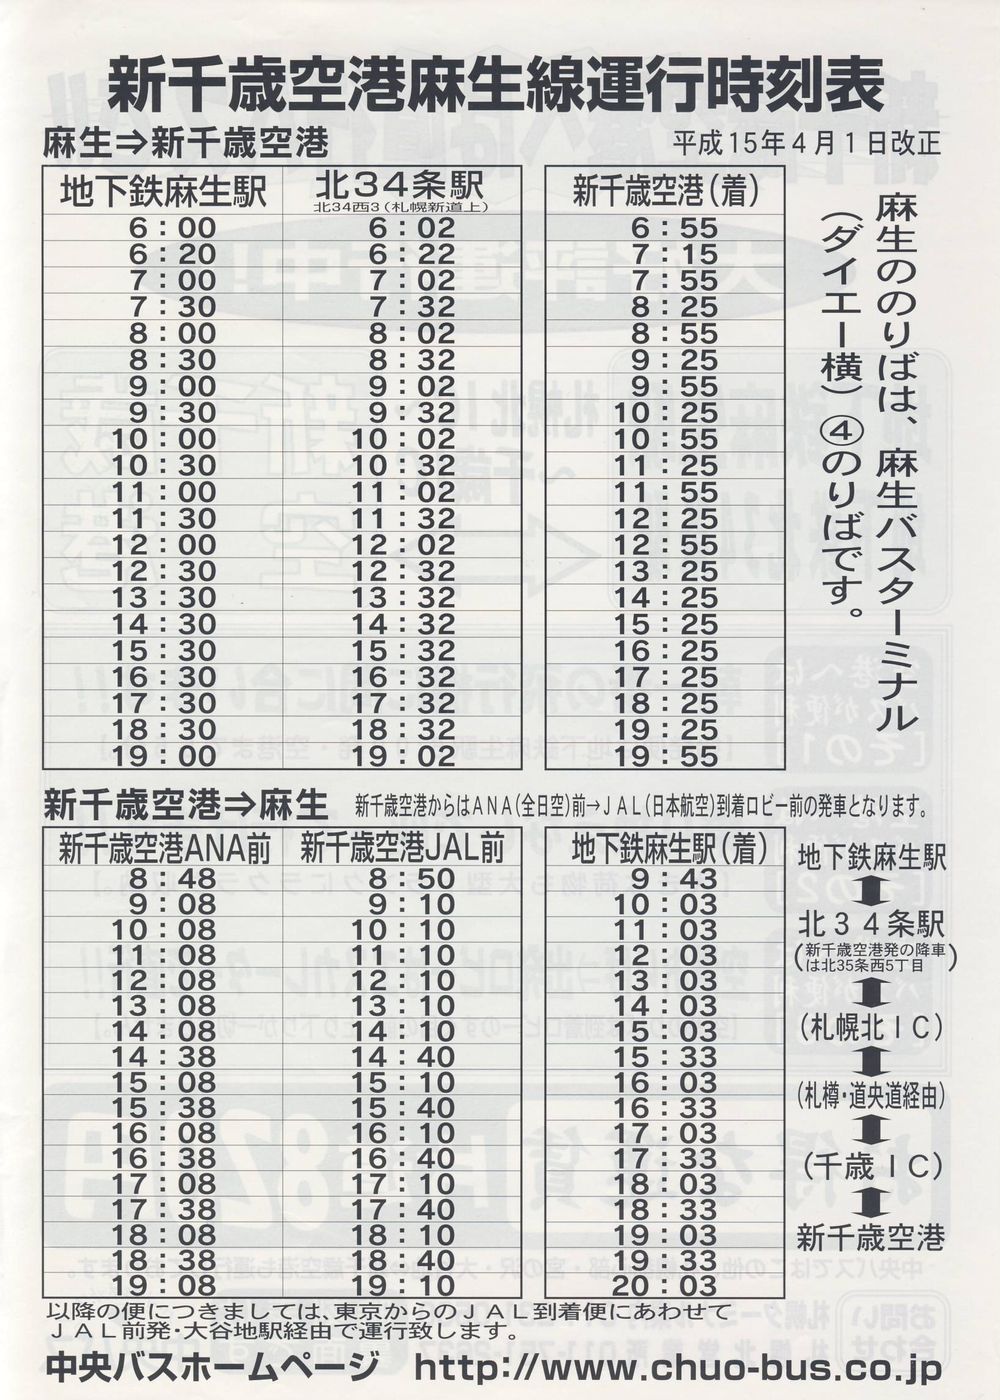 新千歳空港麻生線運行時刻表
麻生⇒新千歳空港
平成15年4月1日改正
地下鉄麻生駅 北34条駅 新千歳空港(着)
北34西3(札幌新道上)
6:00 6:02 6:55
6:20 6:22 7:15
7:00 7:02 7:55
7:30 7:32 8:25
8:00 8:02 8:55
8:30 8:32 9:25
9:00 9:02 9:55
9:30 9:32 10:25
10:00 10:02 10:55
10:30 10:32 11:25
11:00 11:02 11:55
11:30 11:32 12:25
12:00 12:02 12:55
12:30 12:32 13:25
13:30 13:32 14:25
14:30 14:32 15:25
15:30 15:32 16:25
16:30 16:32 17:25
17:30 17:32 18:25
18:30 18:32 19:25
19:00 19:02 19:55
麻生ののりばは、麻生バスターミナル
(ダイエー横)④のりばです。
新千歳空港⇒麻生
新千歳空港からはANA(全日空)前→JAL(日本航空)到着ロビー前の発車となります。
新千歳空港ANA前 新千歳空港JAL前 地下鉄麻生駅(着)
8:48 8:50 9:43
9:08 9:10 10:03
10:08 10:10 11:03
11:08 11:10 12:03
12:08 12:10 13:03
13:08 13:10 14:03
14:08 14:10 15:03
14:38 14:40 15:33
15:08 15:10 16:03
15:38 15:40 16:33
16:08 16:10 17:03
16:38 16:40 17:33
17:08 17:10 18:03
17:38 17:40 18:33
18:08 18:10 19:03
18:38 18:40 19:33
19:08 19:10 20:03
地下鉄麻生駅
北34条駅
(新千歳空港発の降車
は北35条西5丁目)
(札幌北IC)
(札樽・道央道経由)
(千歳IC)
新千歳空港
以降の便につきましては、東京からのJAL到着便にあわせて
JAL前発・大谷地駅経由で運行致します。
中央バスホームページ http://www.chuo-bus.co.jp